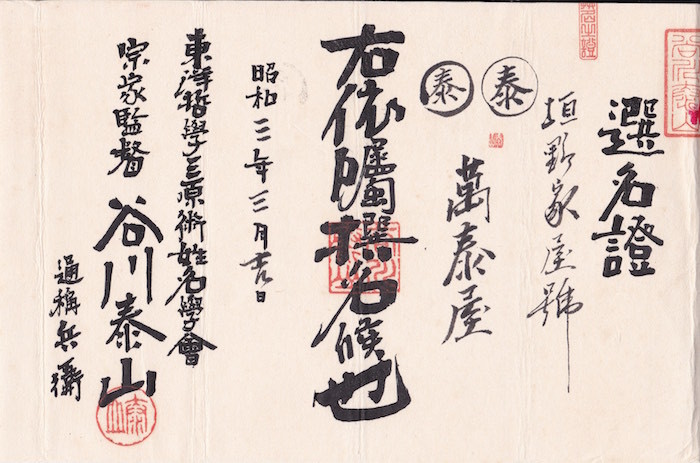 選名證
垣野家屋號
泰
泰
萬泰屋
右依囑撰名候也
昭和三年三月吉日
東洋哲學三原術姓名學會
宗家監督 谷川泰山
通稱兵衛